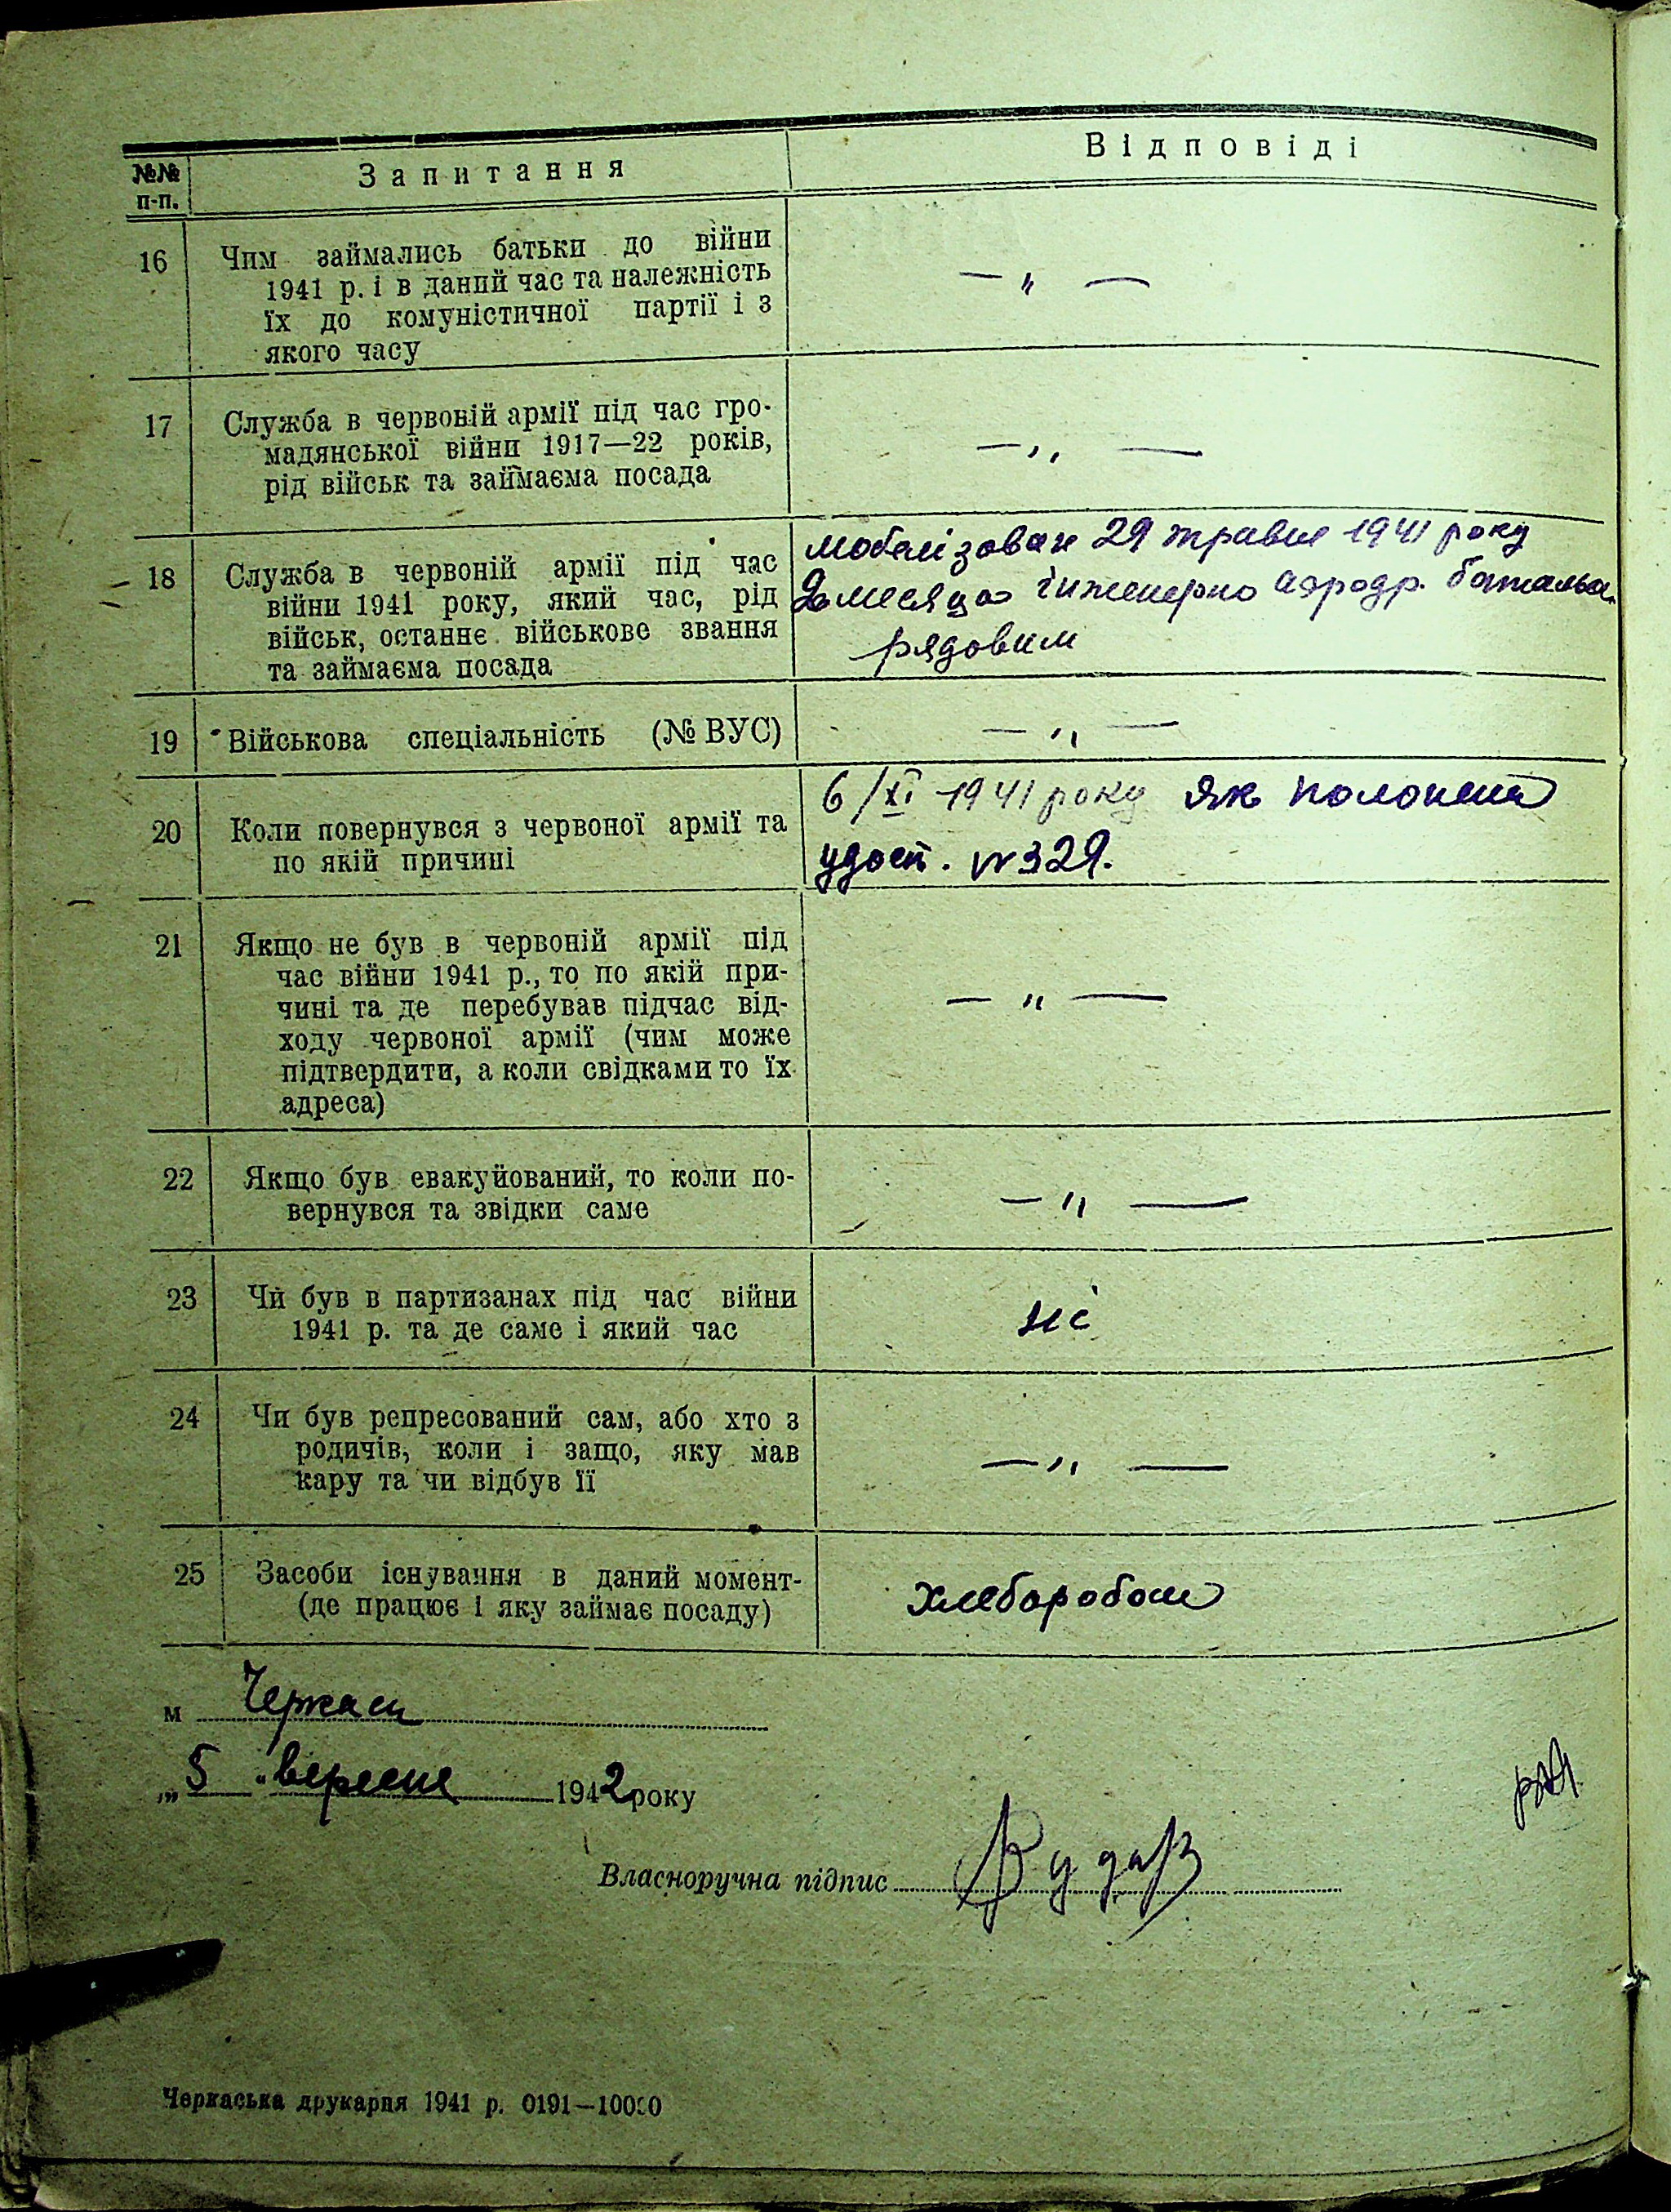 №№ п-п.
Запитання
Відповіді
16
Чим займались батьки до війни
1941 р. і в даний час та належність
їх до комуністичної партії і з
якого часу
— „ —
17
Служба в червоній армії під час гро-
мадянської війни 1917—22 років,
рід військ та займаєма посада
— „ —
18
Служба в червоній армії під час
війни 1941 року, який час, рід
військ, останнє військове звання
та займаєма посада
мобелізован 29 травне 1941 року
2 месяца інженерно аэродр. батальо.
рядовим
19
Військова спеціальність (№ ВУС)
— „ —
20
Коли повернувся з червоної армії та
по якій причині
6/XI 1941 року як полонений
удост. № 329.
21
Якщо не був в червоній армії під
час війни 1941 р., то по якій при-
чині та де перебував підчас від-
ходу червоної армії (чим може
підтвердити, а коли свідками то їх
адреса)
— „ —
22
Якщо був евакуйований, то коли по-
вернувся та звідки саме
— „ —
23
Чи був в партизанах під час війни
1941 р. та де саме і який час
ні
24
Чи був репресований сам, або хто з
родичів, коли і защо, яку мав
кару та чи відбув її
— „ —
25
Засоби існування в даний момент-
(де працює і яку займає посаду)
хлеборобом
м Черкаси
„ 5 " вересне 1942 року
Власноручна підпис
Черкаська друкарня 1941 р. 0191—10000